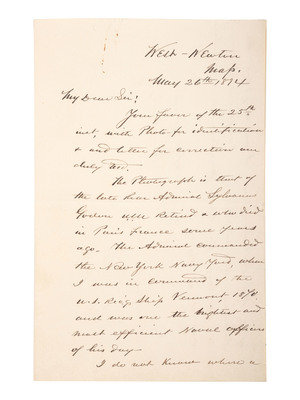 West-Newton
Mass.
May 26th 1894
My Dear Sir:
Your favor of the 25th
inst, with Photo for identification
& and letter for correction was
duly
The Photograph is that of
the late Rear Admiral Sylvanus
Godon USN Retired & who died
in Paris France some years
ago. The Admiral commanded
the New York Navy Yard, when
I was in command of the
Ship Vermont 1870
and was one the brightest and
most efficient Naval officers
of his day.
I do not know where a